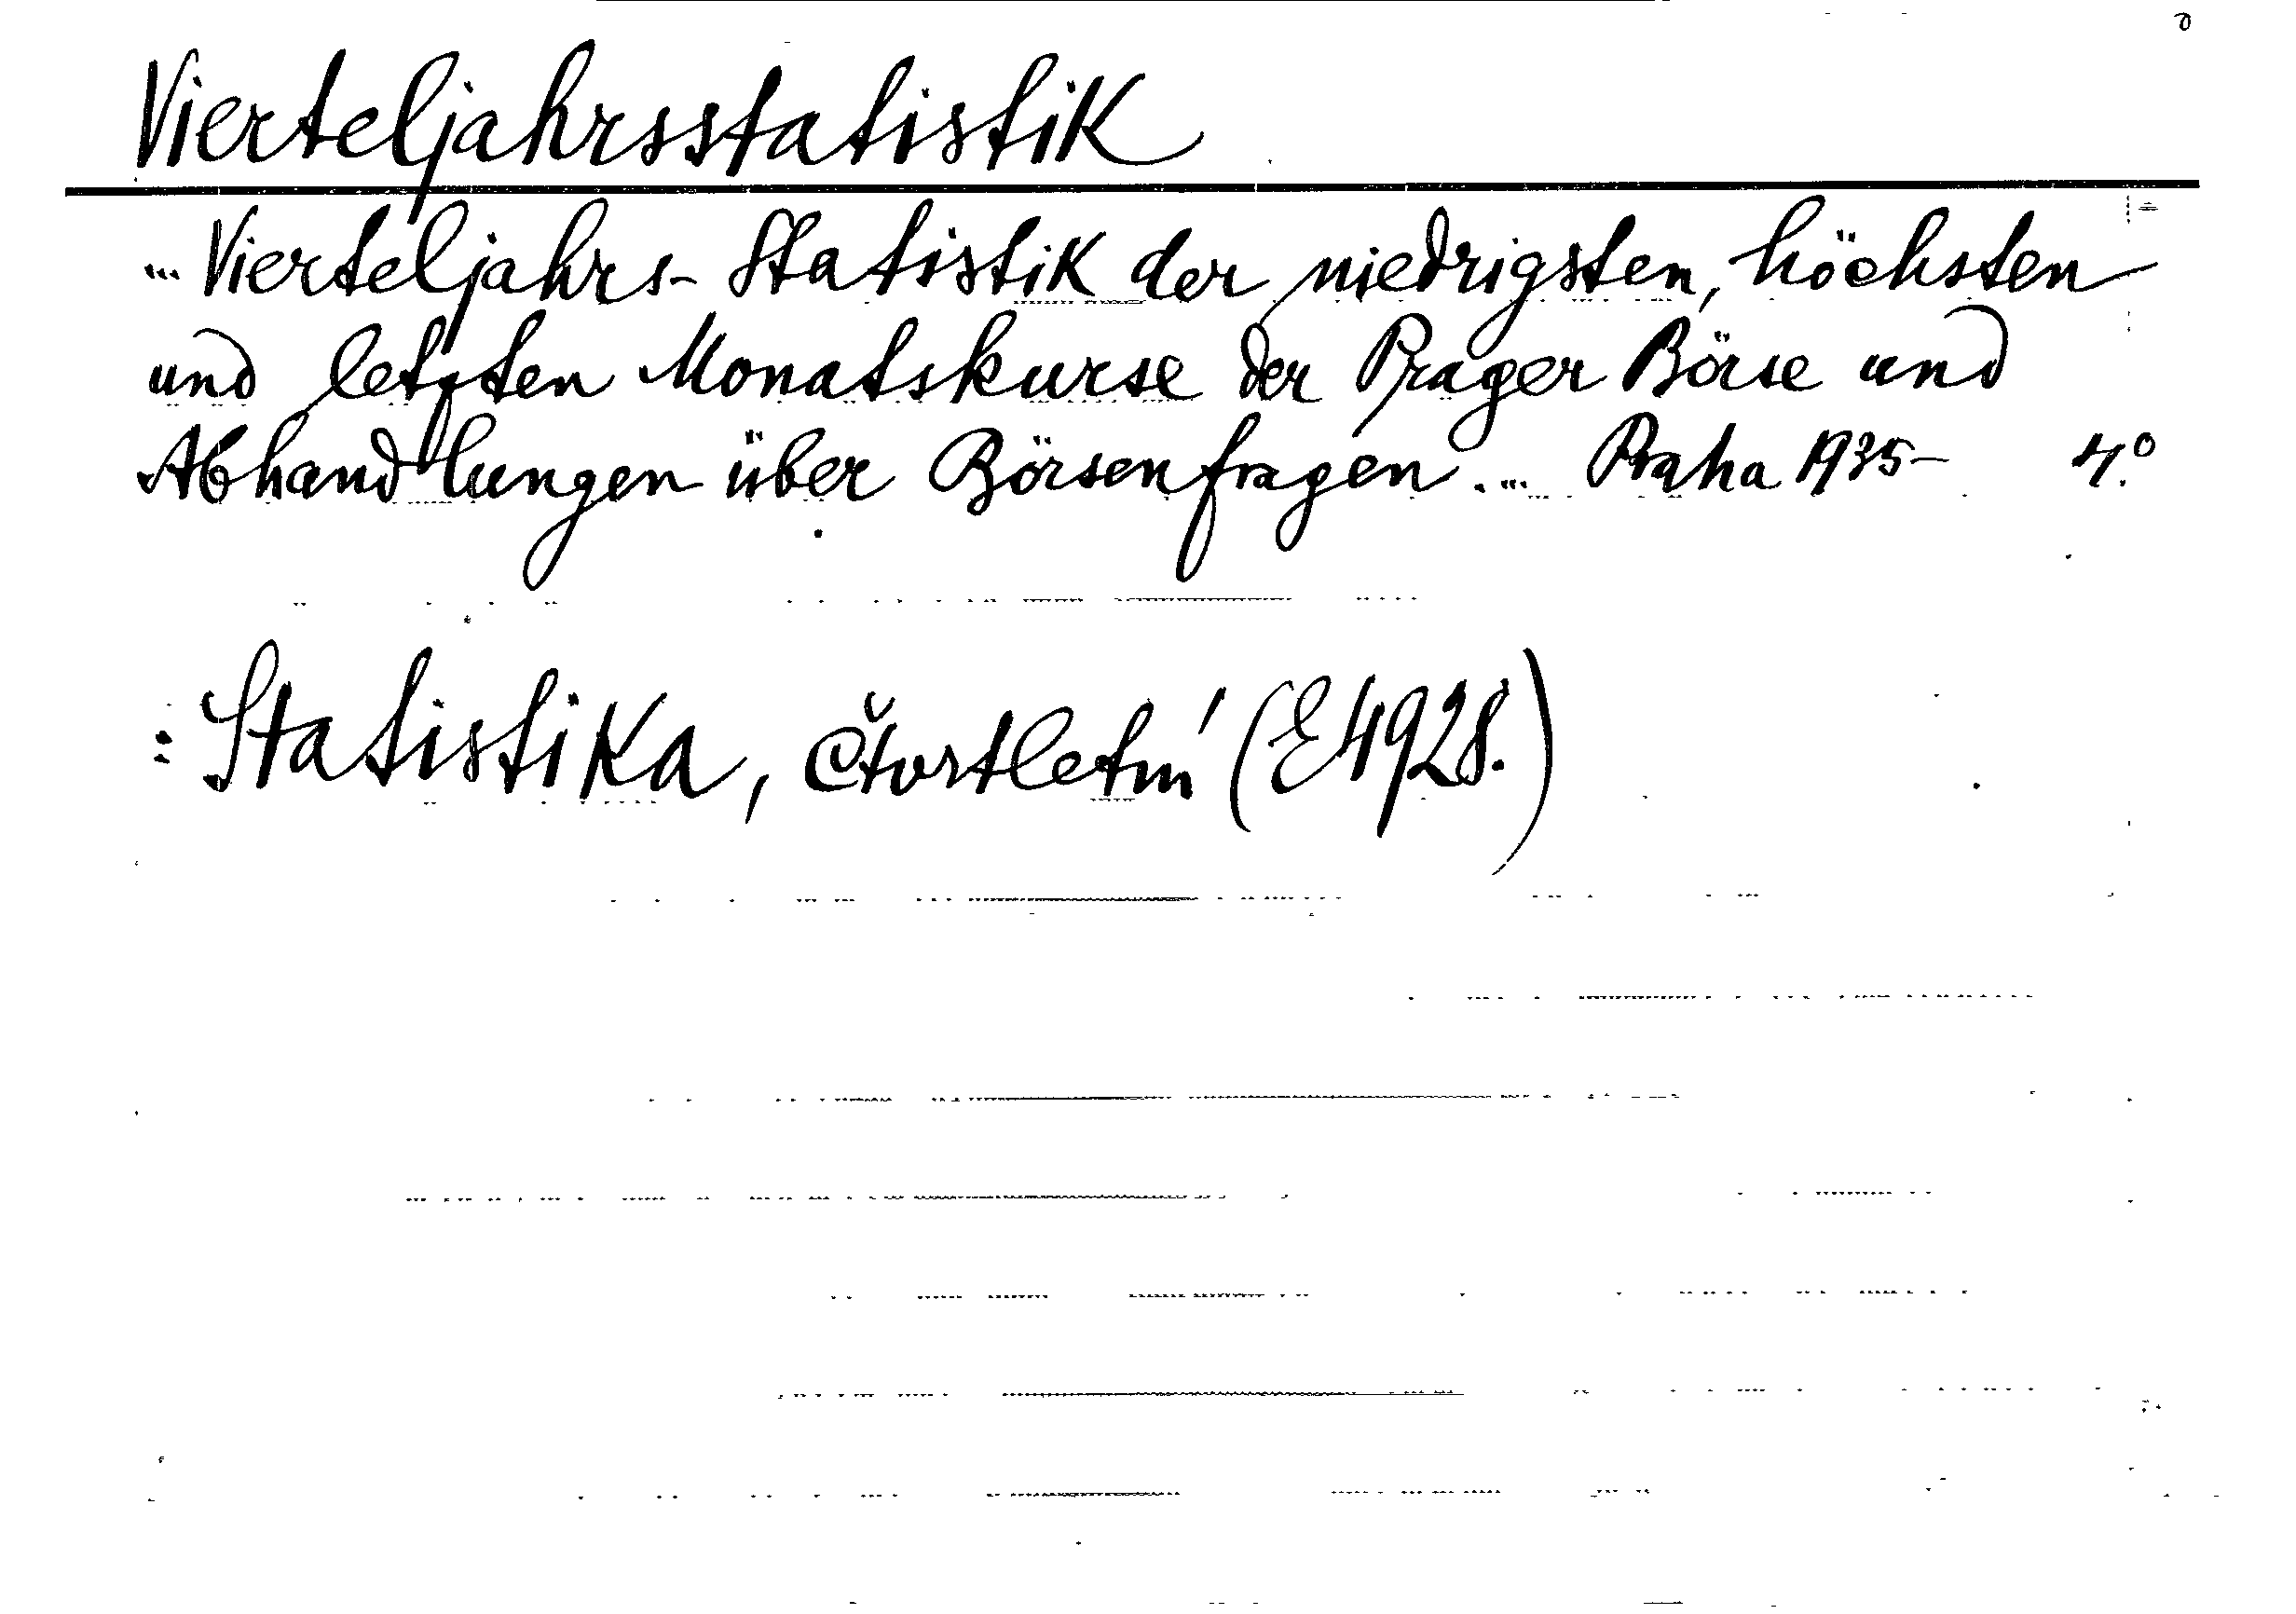 Vierteljahrsstatistik
... Vierteljahrs- Statistik der niedrigsten, höchsten
und letzten Monatskurse der Prager Börse und
Abhandlungen über Börsenfragen. ... Praha 1935- 4.°
: Statistika, čtvrtletní (E 4928.)